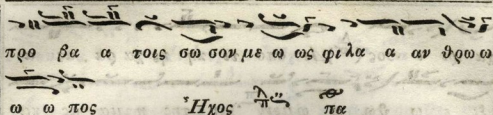 προ βα α τοις σω σον με ω ως φι λα α αν θρω ω
ω ω πος Ἦχος πα